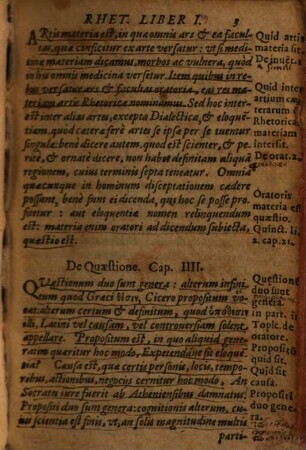 RHET. LIBER I. 3
ARtis materia est, in qua omnis ars & ea facul-
tas, quæ conficitur ex arte versatur: vt si medi-
cinæ materiam dicamus, morbos ac vulnera, quod
in his omnis medicina versetur. Item quibus in re-
bus versatur ars & facultas oratoria, eas res ma-
teriam artis Rhetoricæ nominamus. Sed hoc inter-
est inter alias artes, excepta Dialectica, & eloquē-
tiam, quod cæteræ ferè artes se ipsæ per se tuentur
singulæ: benè dicere autem, quod est scienter, & pe-
ritè, & ornatè dicere, non habet definitam aliquā
regionem, cuius terminis septa teneatur. Omnia
quæcunque in hominum disceptationem cadere
possunt, benè sunt ei dicenda, qui hoc se posse pro-
fitetur: aut eloquentiæ nomen relinquendum
est: materia enim oratori ad dicendum subiecta,
quæstio est.
Quid artis
materia sit.
De inuēt. 1.
Quid inter
artium cæ-
terarum &
Rhetoricæ
materiam
intersit.
De orat. 2.
Oratoris
materia est
quæstio.
Quinct. li.
2. cap. 21.
De Quæstione. Cap. IIII.
QVæstionum duo sunt genera: alterum infini-
tum quod Græci θέσιν, Cicero propositum vo-
cat: alterum certum & definitum, quod ὑπόθεσιν
illi, Latini vel causam, vel controuersiam solent
appellare. Propositum est, in quo aliquid genera-
tim quæritur hoc modo, Expetendáne sit eloquē-
tia? Causa est, quæ certis personis, locis, tempo-
ribus, actionibus, negociis cernitur hoc modo, An
Socrates iure fuerit ab Atheniensibus damnatus?
Propositi duo sunt genera: cognitionis alterum, cu-
ius scientia est finis, vt, an solis magnitudine multis
parti-
Quæstionū
duo sunt
genera.
in part.
Topic. de
oratore.
Quid sit
propositū.
Quid sit
causa.
Propositi
duo sunt
genera.